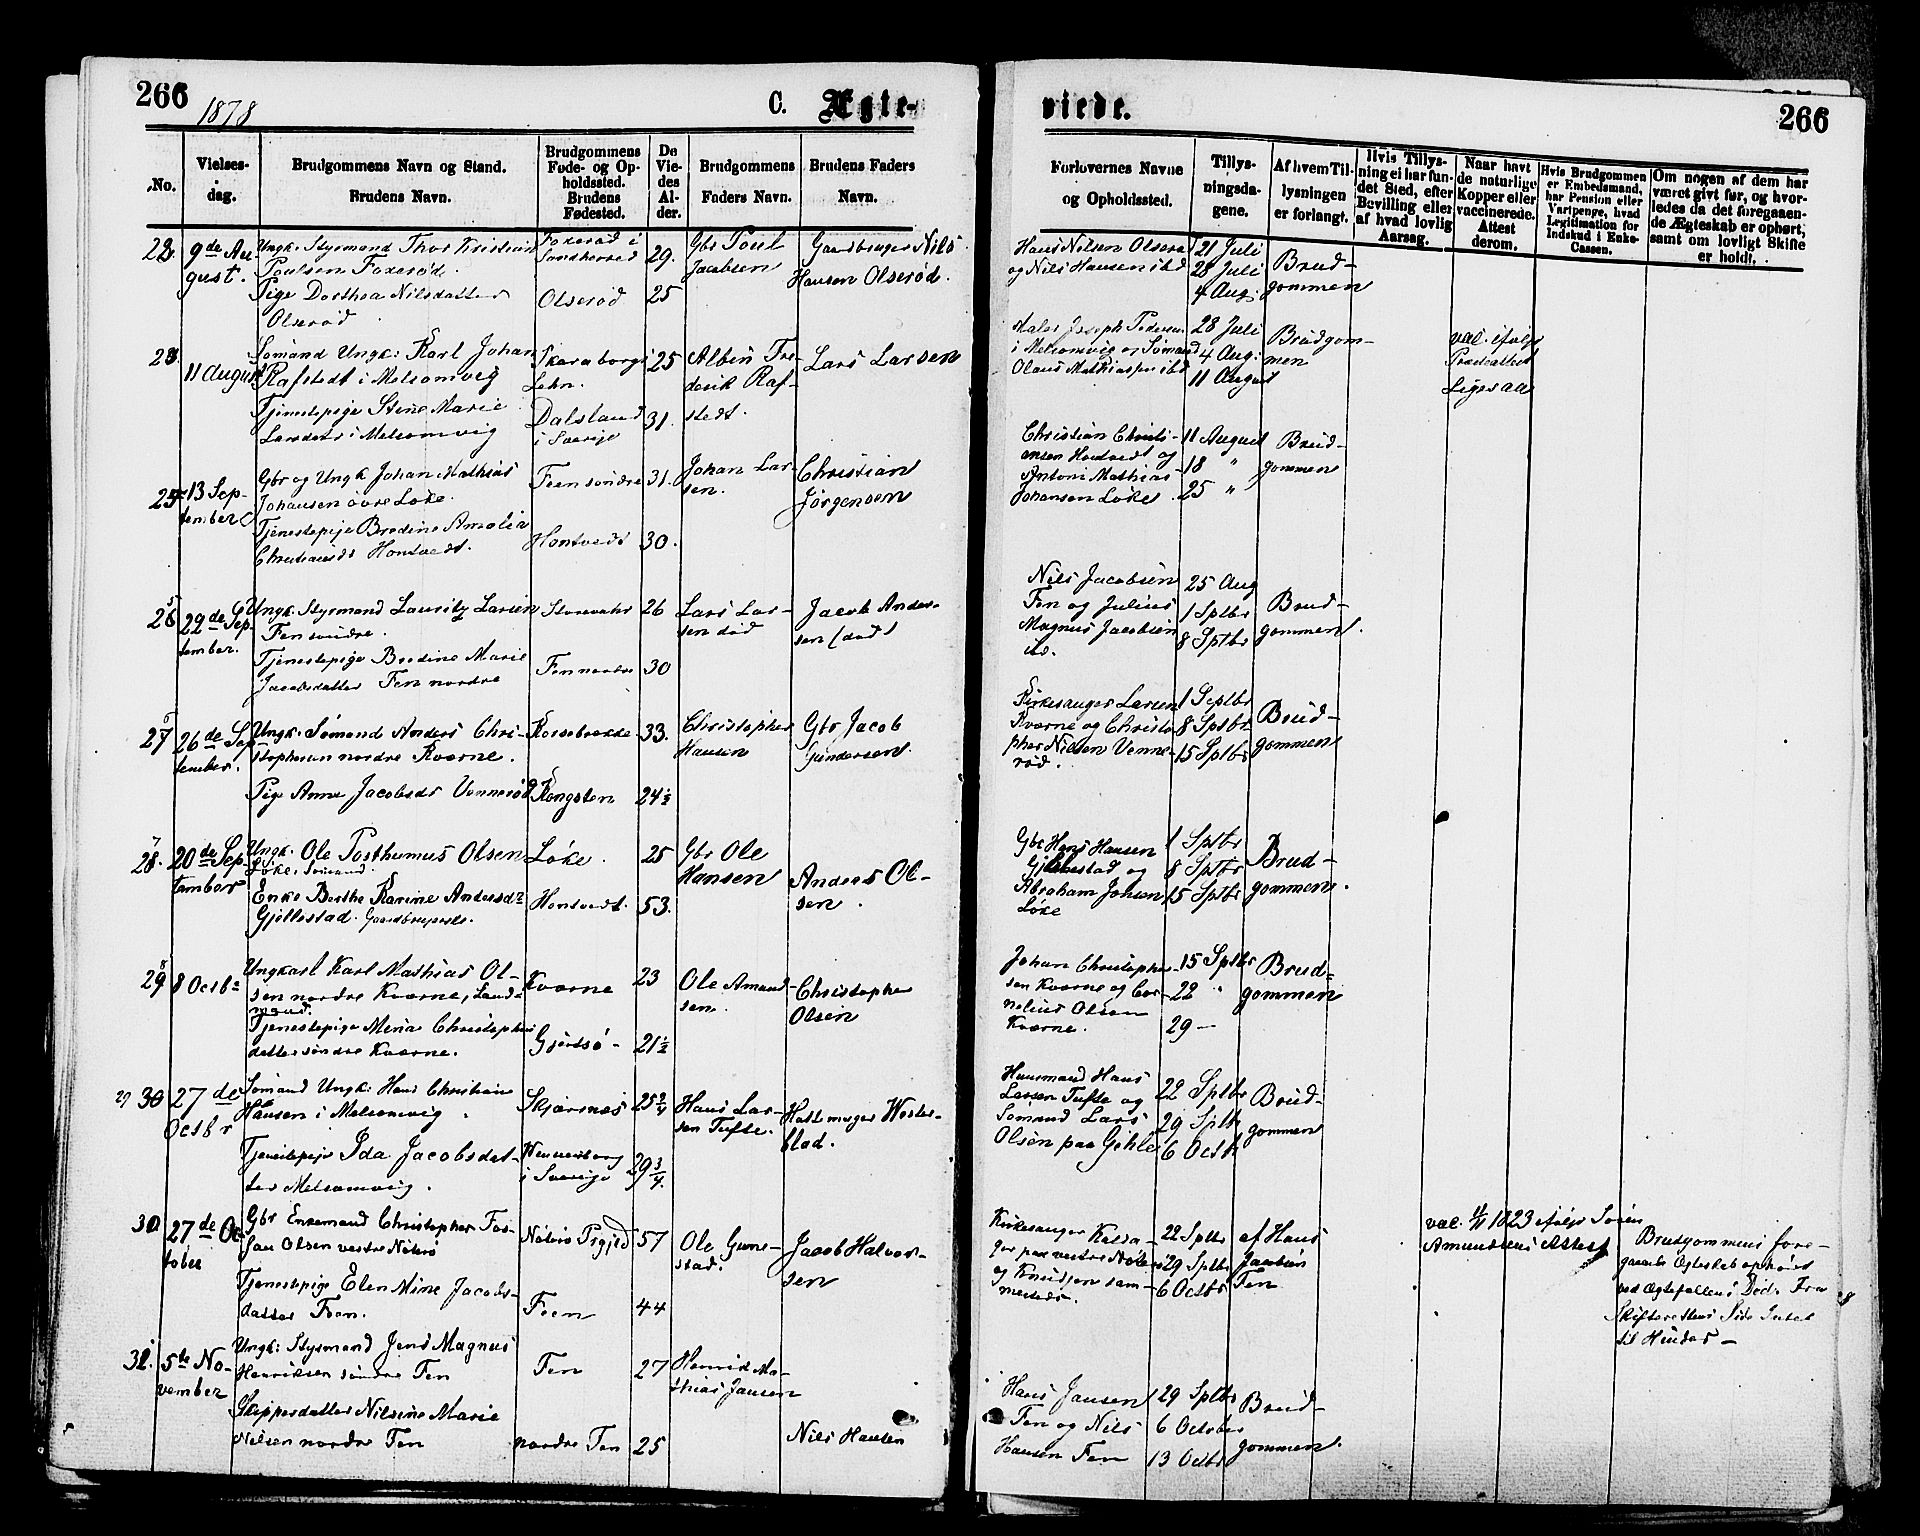 266
1878
C. Ægte-
viede.
266
No.
Vielses-
dag.
Brudgommens Navn og Stand.
Brudens Navn.
Brudgommens
Føde- og Op-
holdssted.
Brudens
Fødested.
De
Vie-
des
Al-
der.
Brudgommens
Faders Navn.
Brudens Faders
Navn.
Forlovernes Navne
og Opholdssted.
Tillys-
ningsda-
gene.
Af hvem Til-
lysningen
er forlangt.
Hvis Tillys-
ning ei har fun-
det Sted, efter
Bevilling eller
af hvad lovlig
Aarsag.
Naar havt
de naturlige
Kopper eller
vaccinerede.
Attest
derom.
Hvis Brudgommen
er Embedsmand,
har Pension eller
Vartpenge, hvad
Legitimation for
Indskud i Enke-
Cassen.
Om nogen af dem har
været givt før, og hvor-
ledes da det foregaaen-
de Ægteskab er ophørt,
samt om lovligt Skifte
er holdt.
9de Au-
gust.
Ungk. Styrmand Thor Kristian
Poulsen Foxerød.
Pige Dorthea Nilsdatter
Olserød
Foxerød i
Sandherred
Olserød
29.
25
Gbr Poul
Jacobsen
Gaardbruger Nils
Hansen Olserød.
Hans Nilsen Olserød
og Nils Hansen ibd
21 Juli
28 Juli
4 Aug:
Brud-
gommen
11 August
Sømand Ungk: Karl Johan
Rafstedt i Melsomvig
Tjenestepige Stine Marie
Larsdatr i Melsomvig
Skaraborgs
Lehn.
Dalsland
i Sverige
25
31.
Albin Fre-
derik Raf-
stedt.
Lars Larsen
Maler Joseph Pedersen
i Melsomvig og Sømand
Olaus Mathiassen ibd
28 Juli
4 Aug:
11 August
Brudgom-
men
vac. ifølge
Præsteattest
13 Sep-
tember
Gbr og Ungk Johan Mathias
Johansen øvre Løke.
Tjenestepige Bredine Amalia
Christiansdr Hontvedt.
Feen søndre
Hontvedt
31.
30.
Johan Lar-
sen.
Christian
Jørgensen
Christian Christi-
ansen Hontvedt og
Antoni Mathias
Johansen Løke.
11 August
18 "
25 "
Brud-
gommen
29de Sep-
tember.
Ungk. Styrmand Lauritz Larsen
Fen søndre.
Tjenestepige Bredine Marie
Jacobsdatter Fen nordre
Fen nordre
26
30
Lars Lar-
sen død
Jacob Ander-
sen (død)
Nils Jacobsen
Fen og Julius
Magnus Jacobsen
ibd.
25 Aug
1 Sptbr
8 Sptbr
Brud-
gommen.
26de Sep-
tember.
Ungk: Sømand Anders Chri-
stophersen nordre Kværne.
Pige Anne Jacobsdr Vennerød
Korsebrække
Kongsten
33.
24½
Christopher
Hansen
Gbr Jacob
Gundersen.
Kirkesanger Larsen
Kværne og Christo-
pher Nielsen Venne-
rød.
1 Septbr
8 Sptbr
15 Sptbr
Brud-
gommen
28.
20de Sep-
tember
Ungk. Ole Posthumus Olsen
Løke, Sømand.
Enke Berthe Karine Andersdr
Gjellestad.
Løke.
Hontvedt.
25
53.
Gbr Ole
Hansen
Anders Ol-
sen.
Gbr Hans Hansen
Gjellestad og
Abraham Johsen
Løke
1 Sptbr
8 Sptbr
15 Sptbr
Brud-
gommen.
29
8 Octbr
Ungkarl Karl Mathias Ol-
sen nordre Kværne, Land-
mand.
Tjenestepige Mina Christopher
datter søndre Kværne.
Kværne
Gjertsø
23
21½
Ole Amund-
sen.
Christopher
Olsen
Johan Christopher-
sen Kværne og Cor-
nelius Olsen
Kværne.
15 Sptbr
22 "
29 —
Brud-
gommen
29 30
27de
Octbr
Sømand Ungk: Hans Christian
Hansen i Melsomvig.
Tjenestepige Ida Jacobsdat-
ter Melsomvig.
Skjærsnæs
Wennersborg
i Sverige
25¾
29¾.
Hans Lar-
sen Tufte.
Hattemager Wester-
blad.
Huusmand Hans
Larsen Tufte og
Sømand Lars
Olsen paa Gjehle
22 Sptbr
29 Sptb
6 Octb
Brud-
gommen
27de Oc-
tober
Gbr Enkemand Christopher Fos-
jan Olsen vestre Nøterø
Tjenestepige Elen Mine Jacobs-
datter Feen.
Nøterø Prgjld
Feen
57
44
Ole Gunne-
stad.
Jacob Halvor-
sen
Kirkesanger
ger paa vestre Nøterø
og Knudsen sam-
mesteds.
22 Sptbr
29 Sptbr
6 Octbr
af Hans
Jacobsen
Fen
1823 ifølge Søren
Amundsens Attest
Brudgommens fore-
gaaende Ægteskab ophævet
ved Ægtefællens Død. Fra
Skifterettens Side Intet
til Hinder —
5te No-
vember
Ungk: Styrmand Jens Magnus
Henriksen søndre Fen
Skippersdatter Nilsine Marie
Nilsen nordre Fen
Fen
nordre Fen
27
25
Henrik Ma-
thias Jansen
Nils Hansen
Hans Jansen
Fen og Nils
Hansen Fen
29 Sptbr
6 October
13 Octbr
Brud-
gommen.